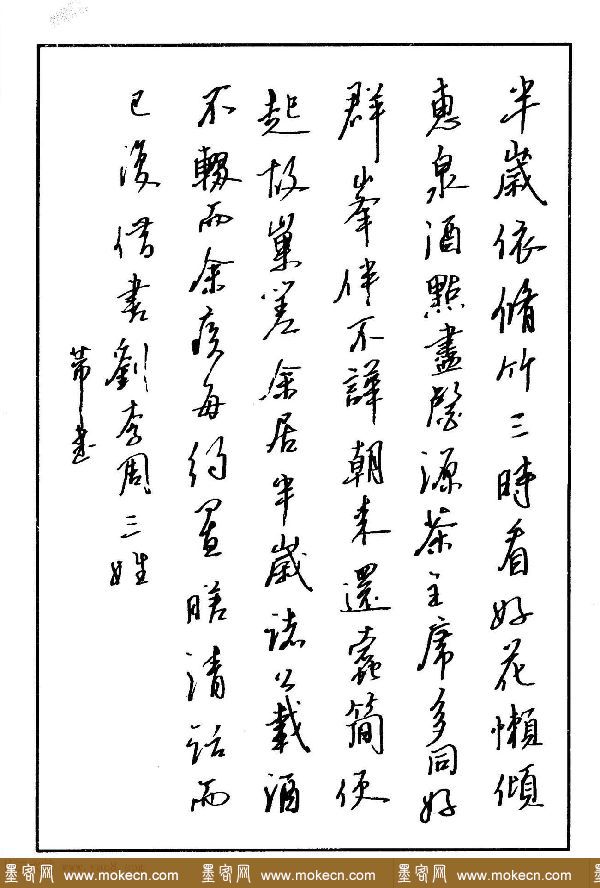 半歲依脩竹三時看好花懶傾
惠泉酒點盡壑源茶主席多同好
群峯伴不譁朝来還蠹簡便
起故巢嗟余居半歲諸公載酒
不輟而余疾每約置膳清話而
已復借書劉李周三姓
芾書
墨客网 www.mokecn.com 墨客网 www.mokecn.com 墨客网 www.mokecn.com